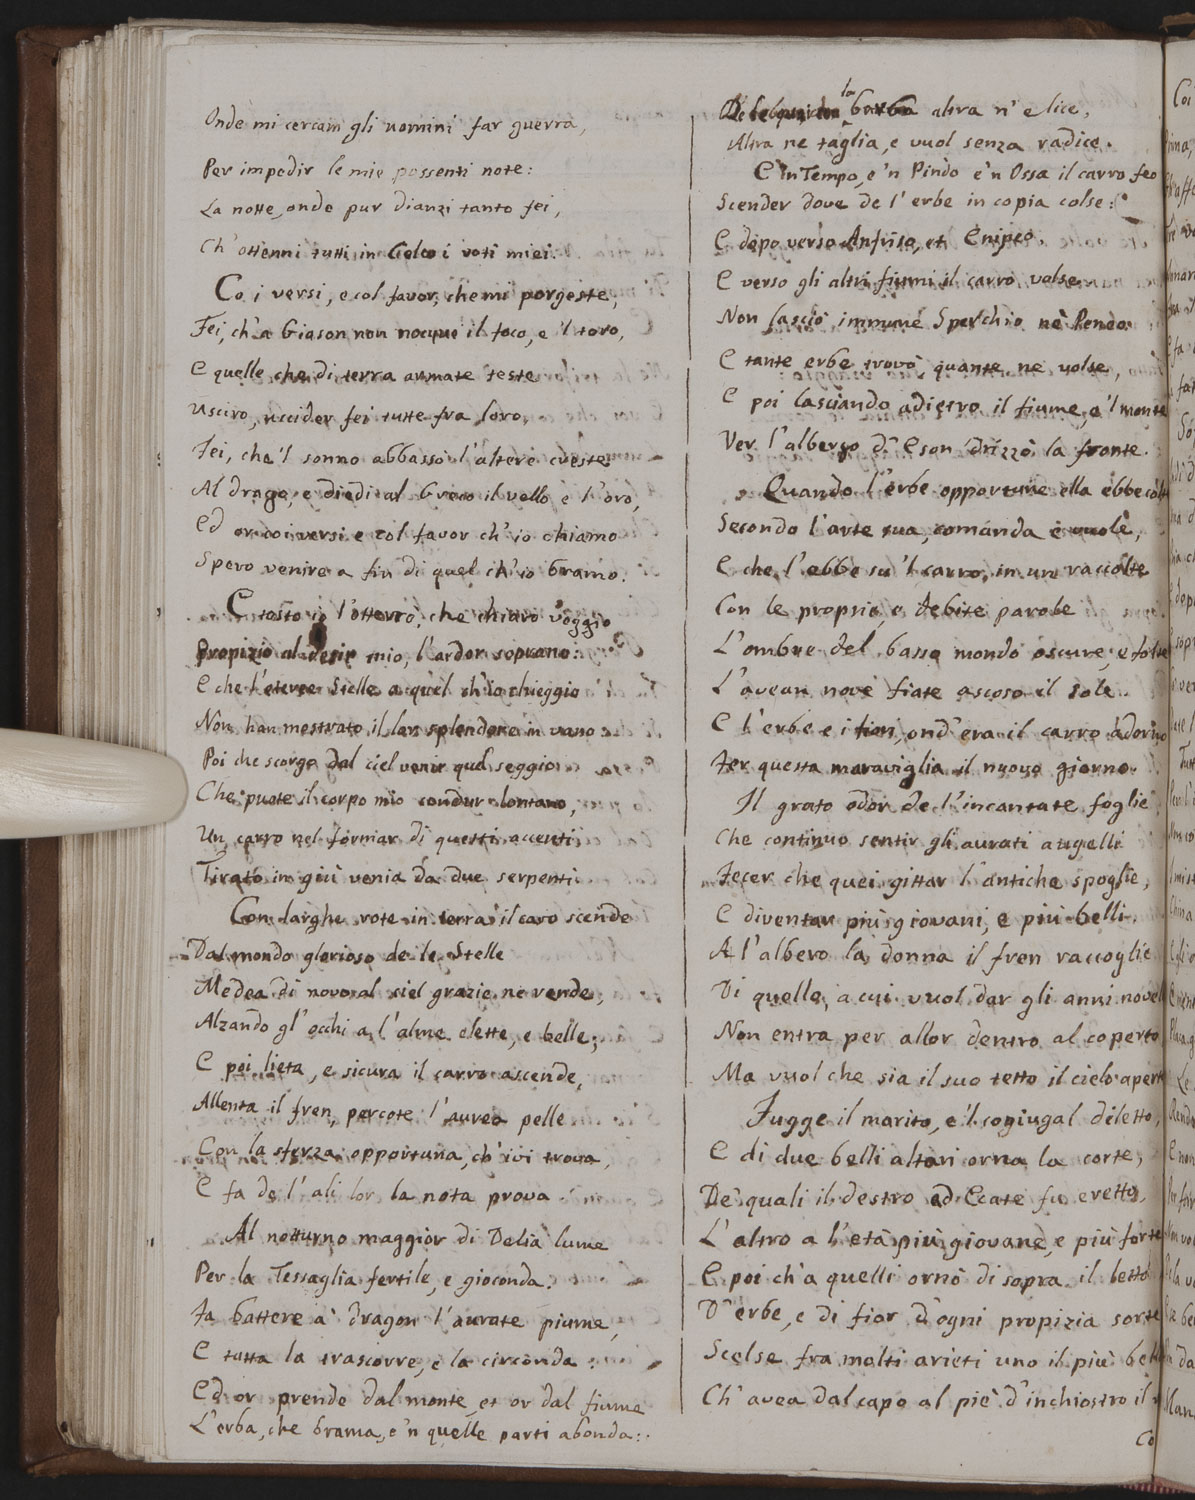 Onde mi cercam gli uomini far guerra,
Per impedir le mie possenti note:
La notte, onde pur dianzi tanto fei,
Ch' ottenni tutti in Colco i voti miei.
Co i versi, e col favor, che mi porgeste,
Fei, ch' a Giason non nocque il foco, e 'l toro,
E quelle che di terra armate teste
Usciro, uccider fei tutte fra loro,
Fei, che 'l sonno abbassò l' altere creste
Al drago, e diedi al Greco il vello e l' oro,
Ed or co i versi e col favor ch' io chiamo
Spero venire a fin di quel ch' io bramo.
E tosto io l' otterrò, che chiaro veggio
Propizio al desir mio l' ardor soprano:
E che l' eteree Stelle a quel ch' io chieggio
Non han mostrato il lor splendore in vano
Poi che scorgo dal ciel venir qua seggio
Che puote il corpo mio condur lontano,
Un carro nel formar di questi accenti
Tirato in giù venia da due serpenti.
Con larghe rote in terra il caro scende
Dal mondo glorioso de le Stelle
Medea di novo al ciel grazie ne rende,
Alzando gl' occhi a l' alme elette, e belle;
E poi lieta, e sicura il carro ascende,
Allenta il fren, percote l' aurea pelle
Con la sferza opportuna, ch' ivi trova,
E fa de l' ali lor la nota prova.
Al notturno maggior di Delia lume
Per la Tessaglia fertile, e gioconda.
Fa battere a' dragon l' aurate piume,
E tutta la trascorre, e la circonda:
Ed or prende dal monte, et or dal fiume
L' erba, che brama, e 'n quelle parti abonda:.
la
barba altra n' elice,
Altra ne taglia, e vuol senza radice.
E in Tempo, e 'n Pindo e 'n Ossa il carro feo
Scender dove de l' erbe in copia colse:
E dopo verso Anfriso, et Enipeo
E verso gli altri fiumi il carro volse
Non lasciò immune Sperchio nè Peneo:
E tante erbe trovò quante ne volse,
E poi lasciando adietro il fiume, e 'l monte
Ver l' albergo d' Eson drizzò la fronte.
Quando l' erbe opportune ella ebbe colte
Secondo l' arte sua, comanda e vuole,
E che l' ebbe su 'l carro in un raccolte
Con le proprie, e debite parole
L' ombre del basso mondo oscure, e folte
L' avean nove fiate ascoso il sole
E l' erbe e i fiori, ond' era il carro adorno
Fer questa maraviglia il nuovo giorno.
Il grato odor de l' incantate foglie
Che continuo sentir gli aurati augelli
Fecer che quei gittar l' antiche spoglie,
E diventar più giovani, e più belli.
A l' albero la donna il fren raccoglie
Di quelle, a cui vuol dar gli anni novelli
Non entra per allor dentro al coperto
Ma vuol che sia il suo tetto il cielo aperto
Fugge il marito, e 'l coniugal diletto,
E di due belli altari orna la corte,
De' quali il destro ad Ecate fu eretto,
L' altro a l' età più giovane, e più forte
E poi ch' a quelli ornò di sopra il letto
D' erbe, e di fior d' ogni propizia sorte
Scelse fra molti arieti uno il più bello
Ch' avea dal capo al piè d' inchiostro il
Co